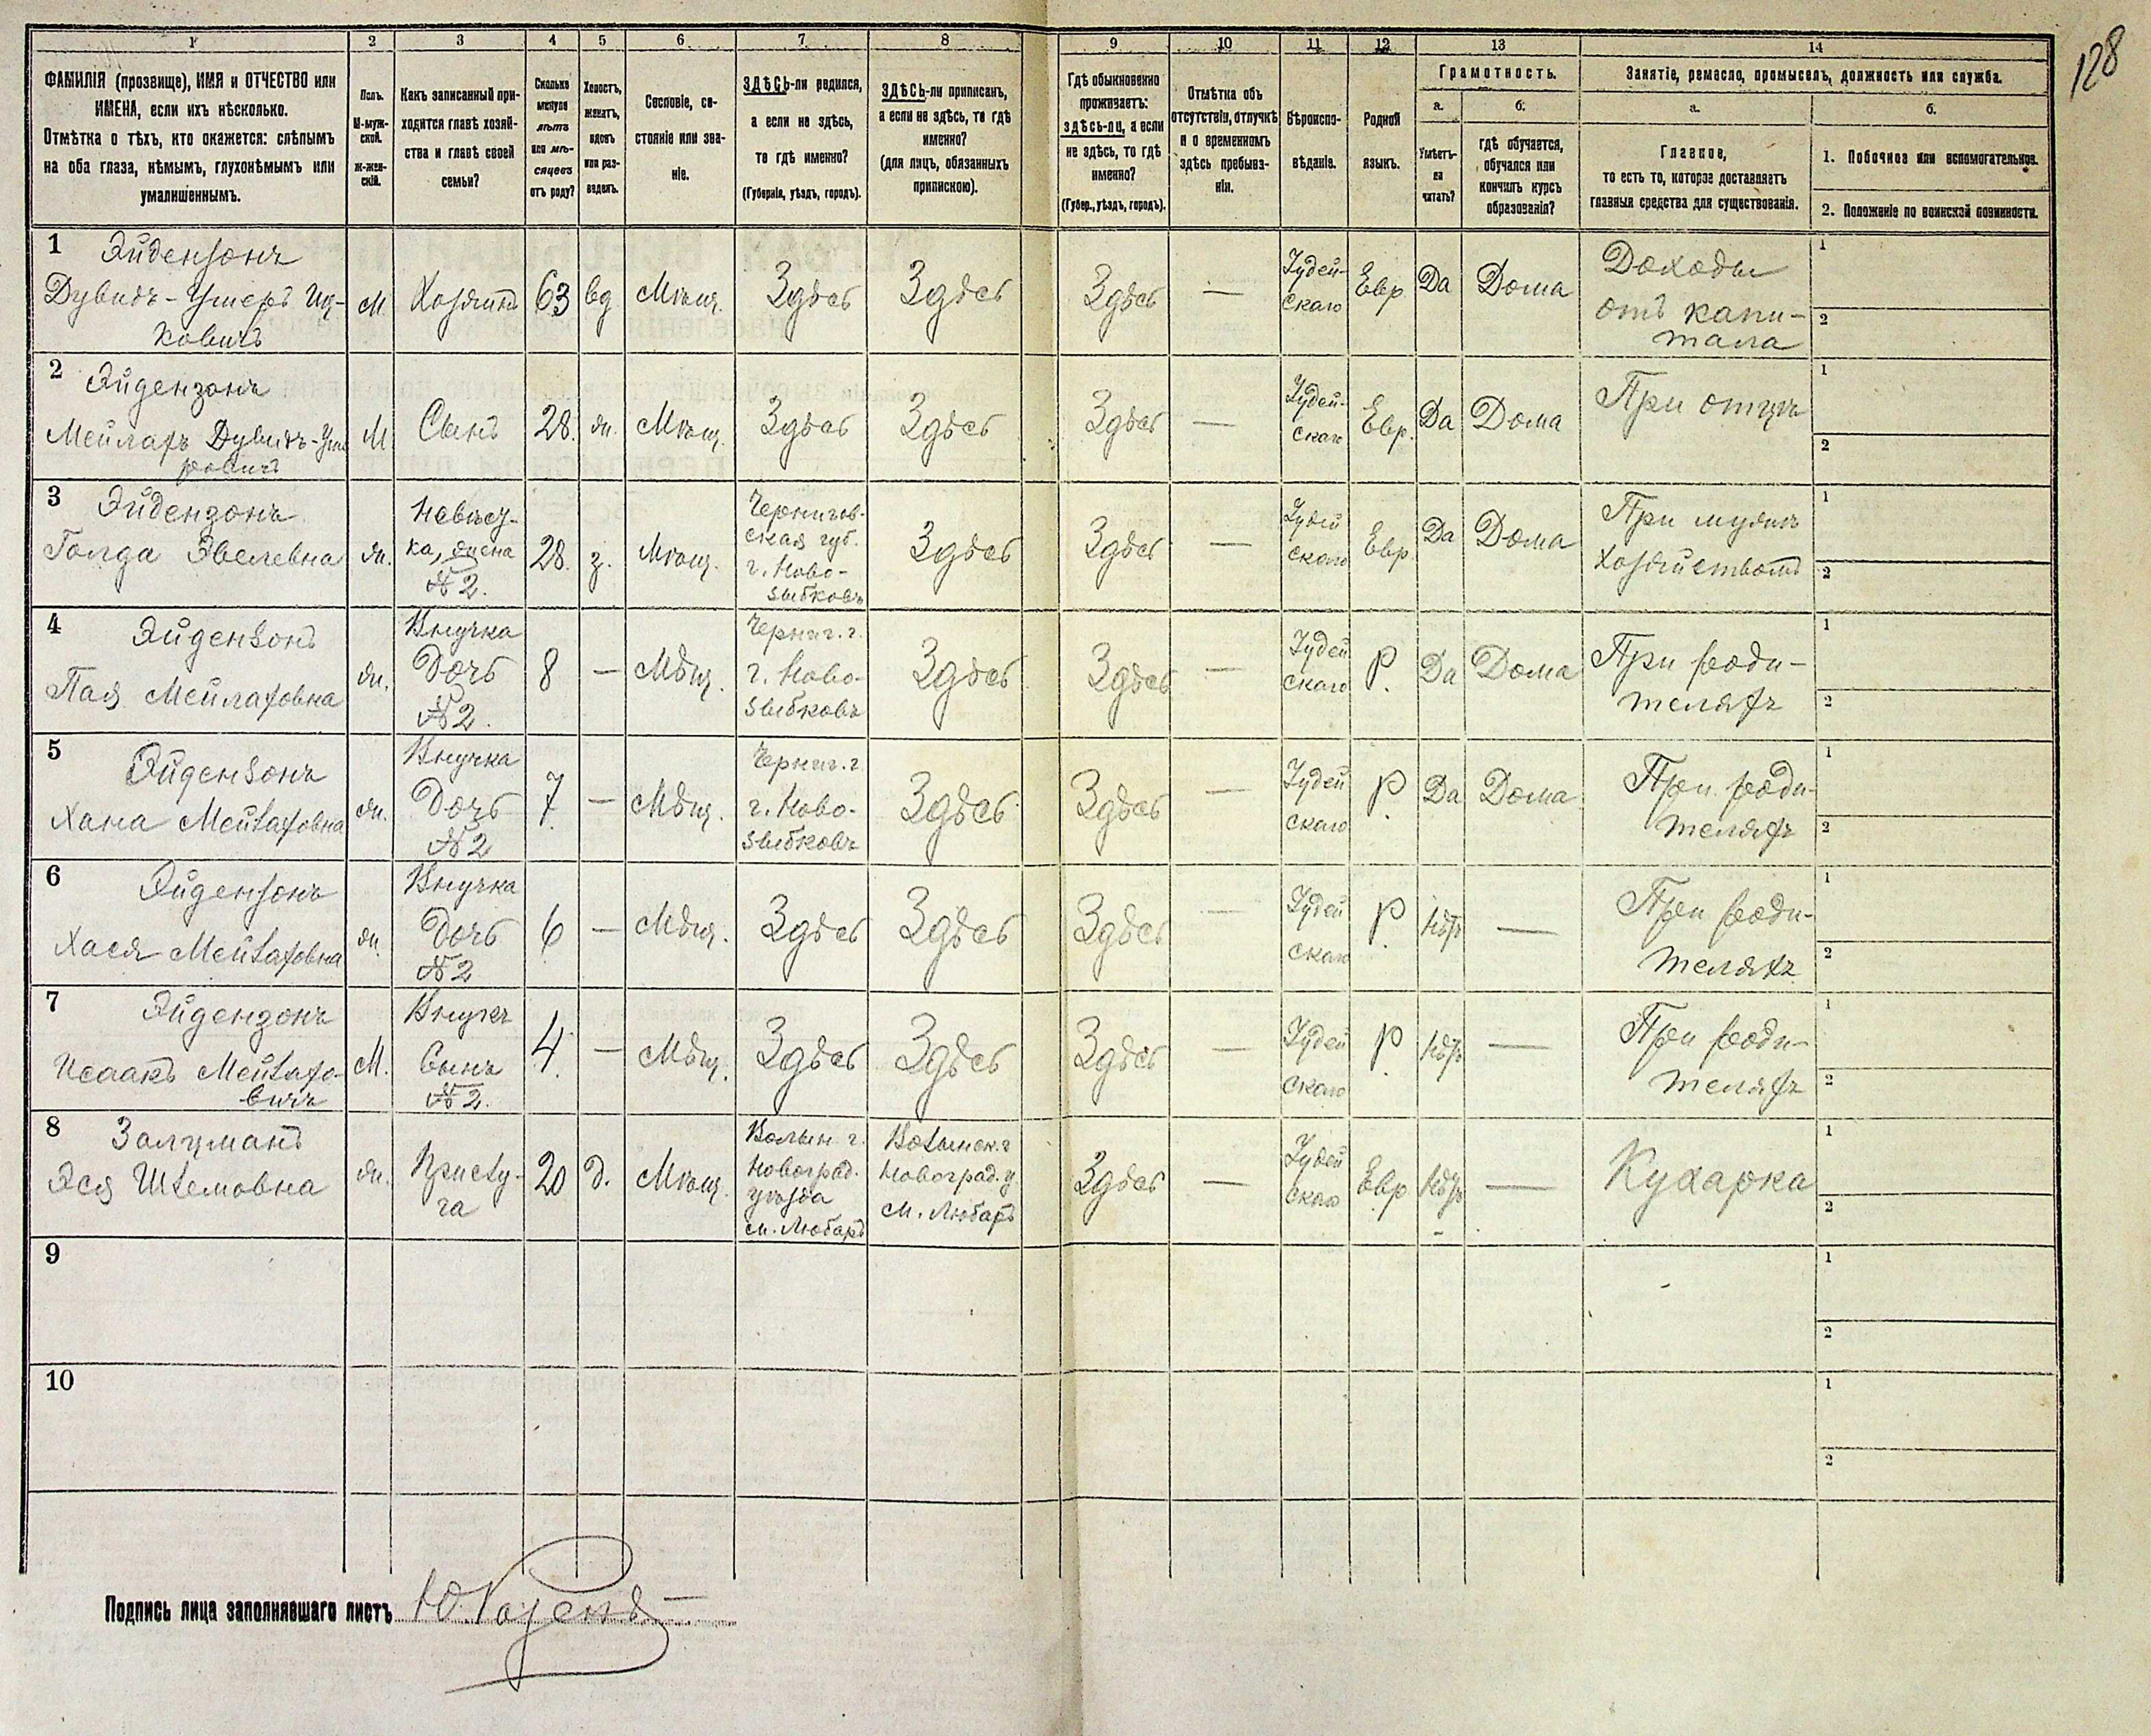 128
1 2 3 4 5 6 7 8 9 10 11 12 13 14
ФАМИЛІЯ (прозвище), ИМЯ и ОТЧЕСТВО или
ИМЕНА, если ихъ нѣсколько.
Отмѣтка о тѣхъ, кто окажется: слѣпымъ
на оба глаза, нѣмымъ, глухонѣмымъ или
умалишеннымъ.
Полъ.
М-муж-
ской.
ж-жен-
скій.
Какъ записанный при-
ходится главѣ хозяй-
ства и главѣ своей
семьи?
Сколько
минуло
лѣтъ
или мѣ-
сяцевъ
отъ роду?
Холостъ,
женатъ,
вдовъ
или раз-
веденъ.
Сословіе, со-
стояніе или зва-
ніе.
ЗДѢСЬ-ли родился,
а если не здѣсь,
то гдѣ именно?
(Губернія, уѣздъ, городъ).
ЗДѢСЬ-ли приписанъ,
а если не здѣсь, то гдѣ
именно?
(для лицъ, обязанныхъ
припискою).
Гдѣ обыкновенно
проживаетъ:
здѣсь-ли, а если
не здѣсь, то гдѣ
именно?
(Губер., уѣздъ, городъ).
Отмѣтка объ
отсутствіи, отлучкѣ
и о временномъ
здѣсь пребыва-
ніи.
Вѣроиспо-
вѣданіе.
Родной
языкъ.
Грамотность.
а.
Умѣетъ-
ли
читать?
б.
гдѣ обучается,
обучался или
кончилъ курсъ
образованія?
Занятіе, ремесло, промыселъ, должность или служба.
а.
Главное,
то есть то, которое доставляетъ
главныя средства для существованія.
б.
1. Побочное или вспомогательное.
2. Положеніе по воинской повинности.
1 Эйдензонъ
Дувидъ-Умеръ Иц-
ковичъ
М
Хозяинъ
63
вд
Мѣщ.
Здѣсь
Здѣсь
Здѣсь
—
Іудей-
скаго
Евр
Да
Дома
Доходы
отъ капи-
тала
1
2
2 Эйдензонъ
Мейлахъ Дувидъ-Уме
ровичъ
М
Сынъ
28.
ж.
Мѣщ.
Здѣсь
Здѣсь
Здѣсь
—
Іудей-
скаго
Евр.
Да
Дома
При отцѣ
1
2
3 Эйдензонъ
Голда Эвелевна
ж.
Невѣст-
ка, жена
№ 2.
28.
з.
Мѣщ.
Чернигов-
ская губ.
г. Ново-
зыбковъ
Здѣсь
Здѣсь
—
Іудей
скаго
Евр.
Да
Дома
При мужѣ
хозяйствомъ
1
2
4 Эйдензонъ
Пая Мейлаховна
ж.
Внучка
Дочь
№ 2.
8
—
Мѣщ.
Черниг. г.
г. Ново-
зыбковъ
Здѣсь
Здѣсь
—
Іудей
скаго
Р.
Да
Дома
При роди-
теляхъ
1
2
5 Эйдензонъ
Хана Мейлаховна
ж.
Внучка
Дочь
№ 2
7
—
Мѣщ.
Черниг. г.
г. Ново-
зыбковъ
Здѣсь
Здѣсь
—
Іудей
скаго
Р.
Да
Дома
При роди-
теляхъ
1
2
6 Эйдензонъ
Хася Мейлаховна
ж.
Внучка
Дочь
№ 2
6
—
Мѣщ.
Здѣсь
Здѣсь
Здѣсь
—
Іудей
скаго
Р.
Нѣтъ
—
При роди-
теляхъ
1
2
7 Эйдензонъ
Исаакъ Мейлахо-
вичъ
М.
Внукъ
Сынъ
№ 2.
4.
—
Мѣщ.
Здѣсь
Здѣсь
Здѣсь
—
Іудей
скаго
Р.
Нѣтъ
—
При роди-
теляхъ
1
2
8 Залцманъ
Эся Шлемовна
ж.
Прислу-
га
20
д.
Мѣщ.
Волын. г.
Новоград.
уѣзда
м. Любаръ
Волынск. г
Новоград. у
м. Любаръ
Здѣсь
—
Іудей
скаго
Евр
Нѣтъ
—
Кухарка
1
2
9
1
2
10
1
2
Подпись лица заполнявшаго листъ Ю. Розенъ